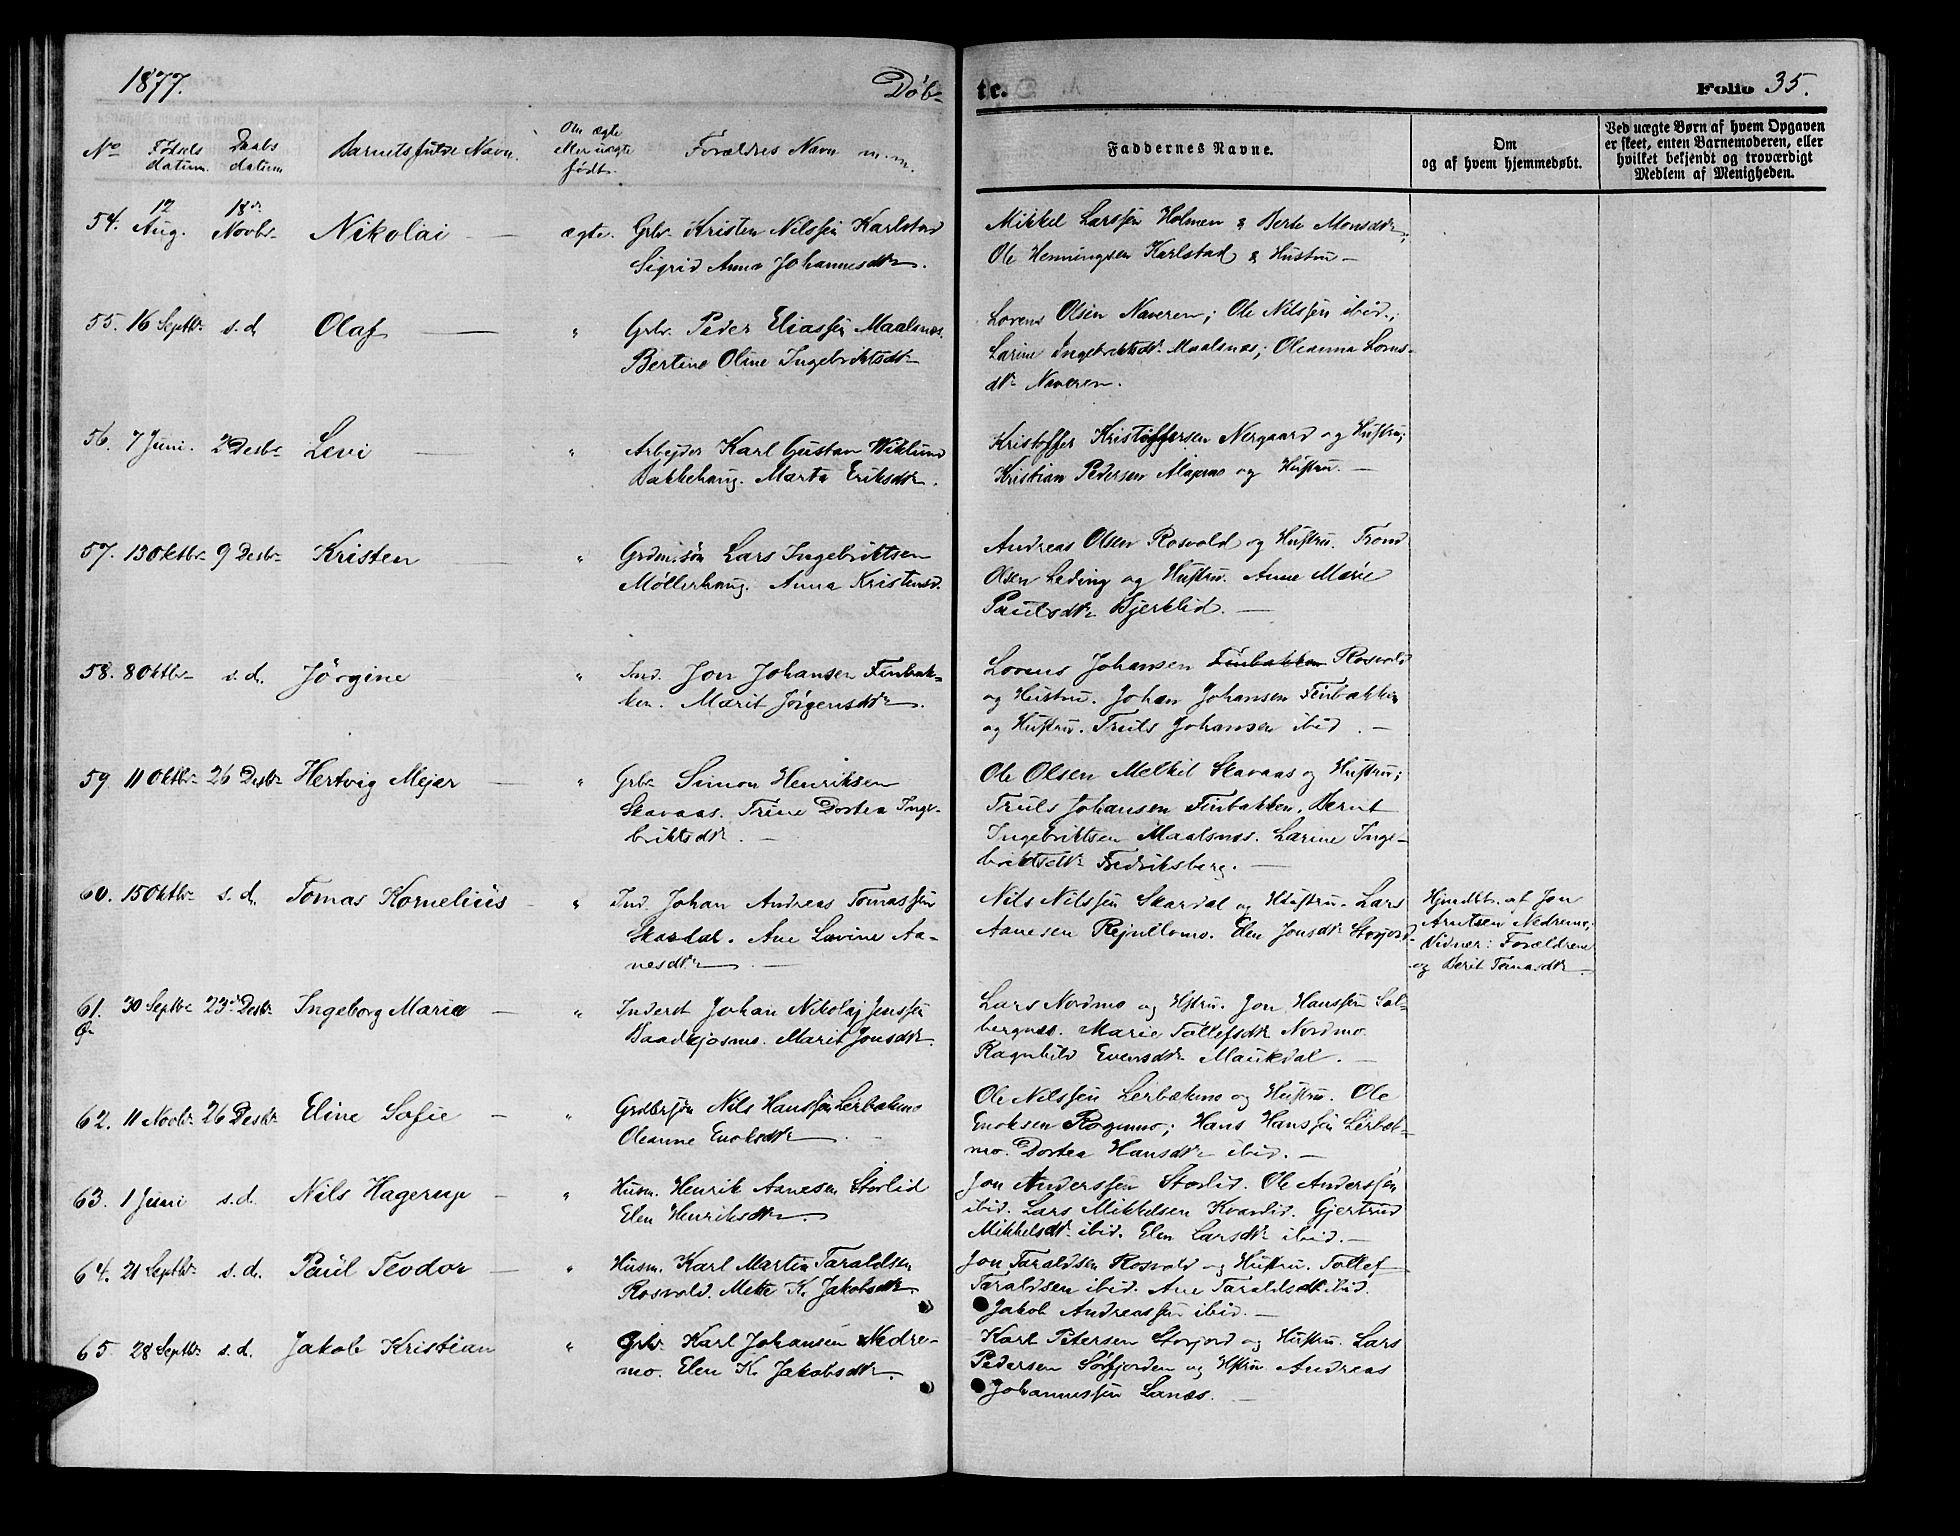 1877.
Døb-
te.
Folio 35.
No
Fødsels datum.
Daabs datum
Barnets fulde Navn.
Om ægte eller uægte født.
Forældres Navn m.m.
Faddernes Navne.
Om og af hvem hjemmedøbt.
Ved uægte Børn af hvem Opgaven er skeet, enten Barnemoderen, eller hvilket bekjendt og troværdigt Medlem af Menigheden.
54. 12 Aug. 18de Novbr Nikolai — ægte. Grbr Kristen Nilssen Karlstad
Sigrid Anna Johannesdtr.
Mikkel Larssen Holmen & Berte Monsdtr;
Ole Henningsen Karlstad & Hustru —
55. 16 Septbr. s.d. Olaf — " Grbr. Peder Eliassen Maalsnes.
Bertine Oline Ingebriktsdtr
Lorens Olsen Naveren; Ole Nilssen ibid.;
Larine Ingebriktsdtr Maalsnes; Oleanna Lorns-
dtr Naveren.
56. 7 Juni. 2 Desbr Levi — " Arbejder Karl Gustav Wiklund
Bakkehaug. Marta Eriksdtr.
Kristoffer Kristoffersen Nergaard og Hustru;
Kristian Pedersen Alapmo og Hustru. —
57. 13 Oktbr 9 Desbr Kristen — " Grdm.søn Lars Ingebrittsen
Møllerhaug. Anna Kristensd.
Andreas Olsen Rosvold og Hustru. Trond
Olsen Leding og Hustru. Anne Marie
Paulsdtr Bjerklid. —
58. 8 Oktbr s.d. Jörgine " Ind. Jon Johansen Finbak-
ken. Marit Jörgensdtr.
Lorens Johansen Finbakken Rosvold
og Hustru. Johan Johansen Finbakken
og Hustru. Truls Johansen ibid. —
59. 11 Oktbr 26 Desbr Hertvig Mejer — " Grbr Simon Henriksen
Skavaas. Trine Dortea Inge-
briktsdtr. —
Ole Olsen Melkil Skavaas og Hustru;
Truls Johansen Finbakken. Bernt
Ingebriktsen Maalsnes. Larine Inge-
briktsdtr Fredriksberg. —
60. 15 Oktbr s.d. Tomas Kornelius - " Ind. Johan Andreas Tomassen
Skardal. Ane Lovine Aa-
nesdtr —
Nils Nilssen Skardal og Hustru. Lars
Aanesen Rejnelvmo. Elen Jonsdtr Storjord.
Hjmdbt. af Jon
Arntsen Nedremo;
Vidner: Forældrene
og Berit Tomasdtr
61. 30 Septbr 23de Desbr Ingeborg Maria — " Inderst Johan Nikolaj Jenssen
Baadkjosmo. Marit Jonsdtr.
Lars Nordmo og Hstru. Jon Hanssen Sol-
bergnes. Marie Tollefsdtr Nordmo.
Ragnhild Evensdtr Maukdal. —
62. 11 Novbr 26 Desbr Eline Sofie — " Grdbrsøn Nils Hanssen Lerbækmo
Oleanne Enoksdtr. —
Ole Nilssen Lerbækmo og Hustru. Ole
Enoksen Rognmo; Hans Hanssen Lerbæk-
mo. Dortea Hansdtr ibid. —
63. 1 Juni s.d. Nils Hagerup — " Husm. Henrik Aanesen Storlid
Elen Henriksdtr.
Jon Anderssen Storlid. Ole Anderssen
ibid. Lars Mikkelsen Kvanlid. Gjertrud
Mikkelsdtr ibid. Elen Larsdtr ibid. —
64. 21 Septbr s.d. Paul Teodor — " Husm. Karl Martin Taraldsen
Rosvold. Mette K. Jakobsdtr
Jon Taraldsen Rosvold og Hustru. Tollef
Taraldsen ibid. Ane Taraldsdtr ibid.
Jakob Andreassen ibid. —
65. 28 Septbr s.d. Jakob Kristian " Grbr Karl Johansen Nedre-
mo. Elen K. Jakobsdtr.
Karl Petersen Storjord og Hustru. Lars
Pedersen Sörfjorden og Hstru Andreas
Johannessen Lanes. —